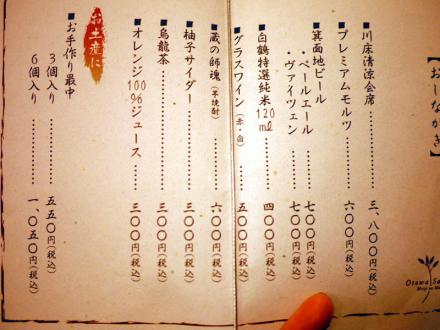 【おしながき】
■川床清涼会席………三、八〇〇円(税込)
■プレミアムモルツ………六〇〇円(税込)
■箕面地ビール
・ペールエール………七〇〇円(税込)
・ヴァイツェン………七〇〇円(税込)
■白鶴特選純米120ml………四〇〇円(税込)
■グラスワイン(赤・白)………五〇〇円(税込)
■蔵の師魂(芋焼酎)………六〇〇円(税込)
■柚子サイダー………三〇〇円(税込)
■烏龍茶………三〇〇円(税込)
■オレンジ100%ジュース………三〇〇円(税込)
お土産に
■お手作り最中
3個入り………五五〇円(税込)
6個入り………一、〇五〇円(税込)